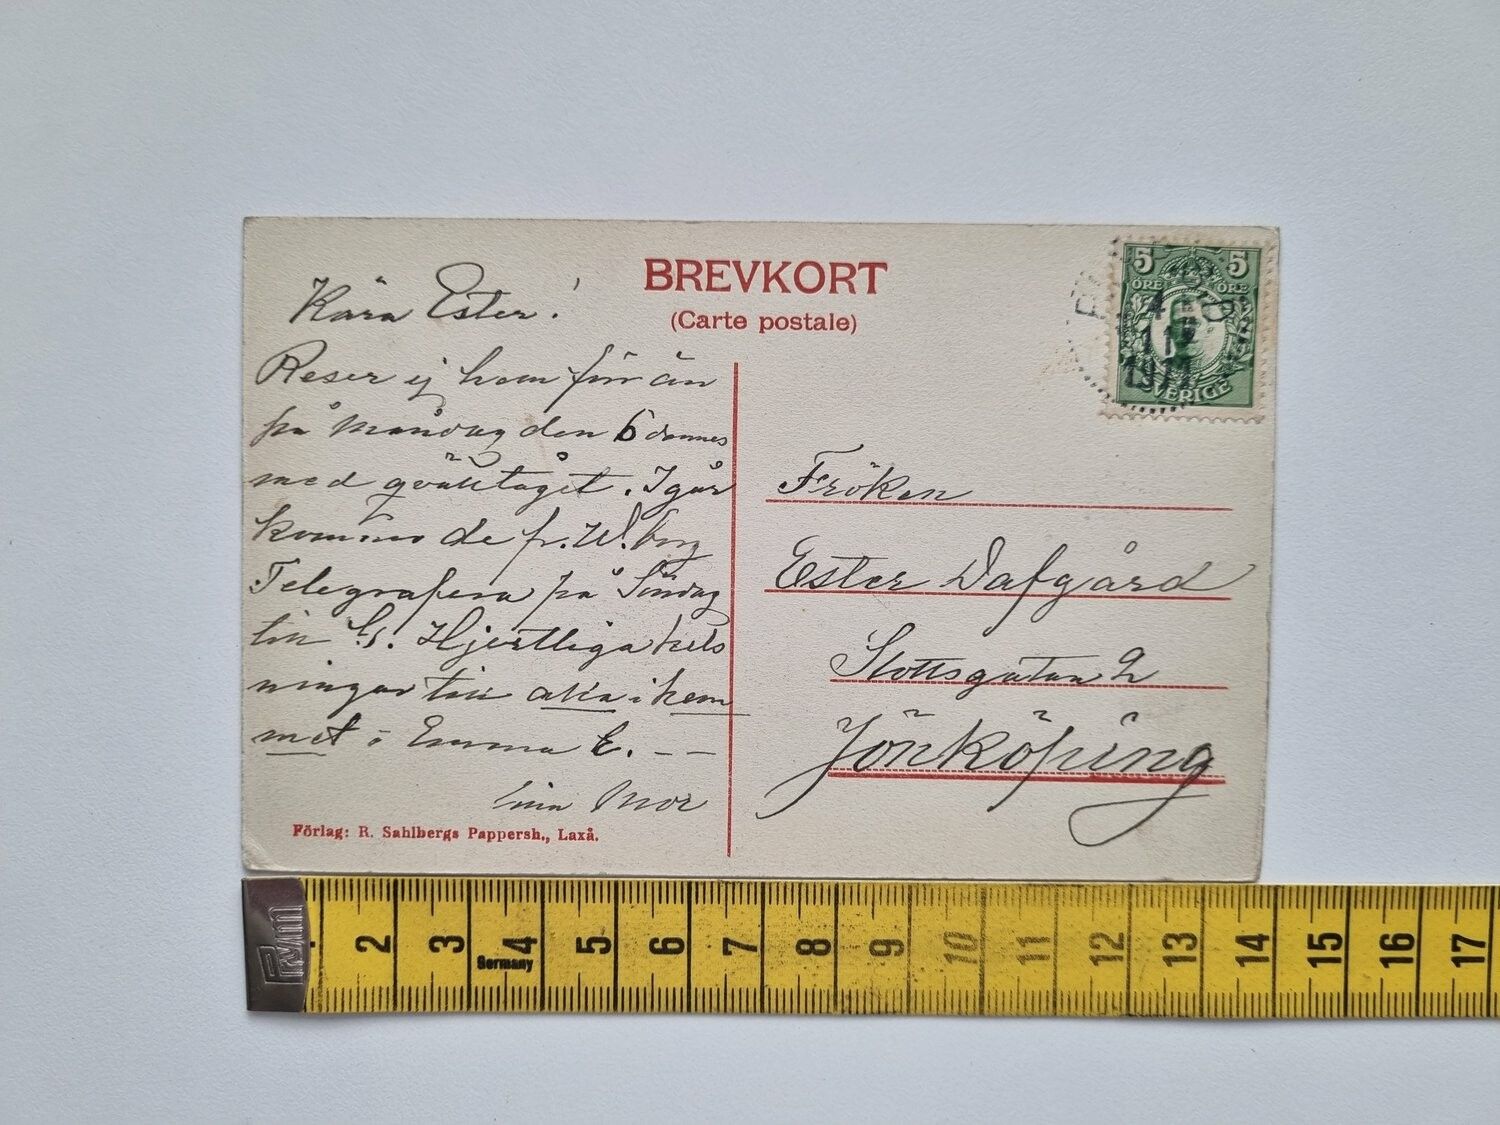 BREVKORT
(Carte postale)
5 5
ÖRE ÖRE
4 11
1911
SVERIGE
Kära Ester!
Reser ej hem för än
på Måndag den 6 dennes
med qvälltåget. Igår
kommo de fr. W.borg
Telegrafera på Söndag
till Hjertliga hels
ningar till alla i hem
met o Emma E. - -
Mor
Fröken
Ester Dafgård
Slottsgatan 2
Jönköping
Förlag: R. Sahlbergs Pappersh., Laxå.
Prym
2 3 4 5 6 7 8 9 10 11 12 13 14 15 16 17
Germany